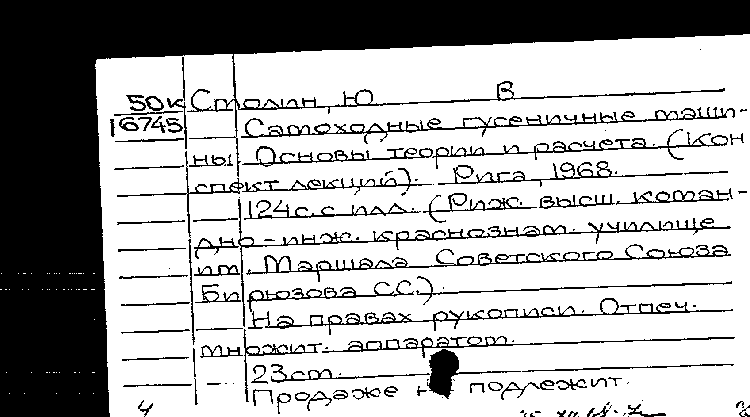 50К Столин, Ю В
16745 Самоходные гусеничные маши-
ны. Основы теории и расчета. (Кон
спект лекций). Рига, 1968.
124с. с илл. (Риж. высш. коман-
дно-инж. краснознам. училище
им. Маршала Советского Союза
Бирюзова С.С.).
На правах рукописи. Отпеч.
множит. аппаратом.
23см.
Продаже подлежит.
4